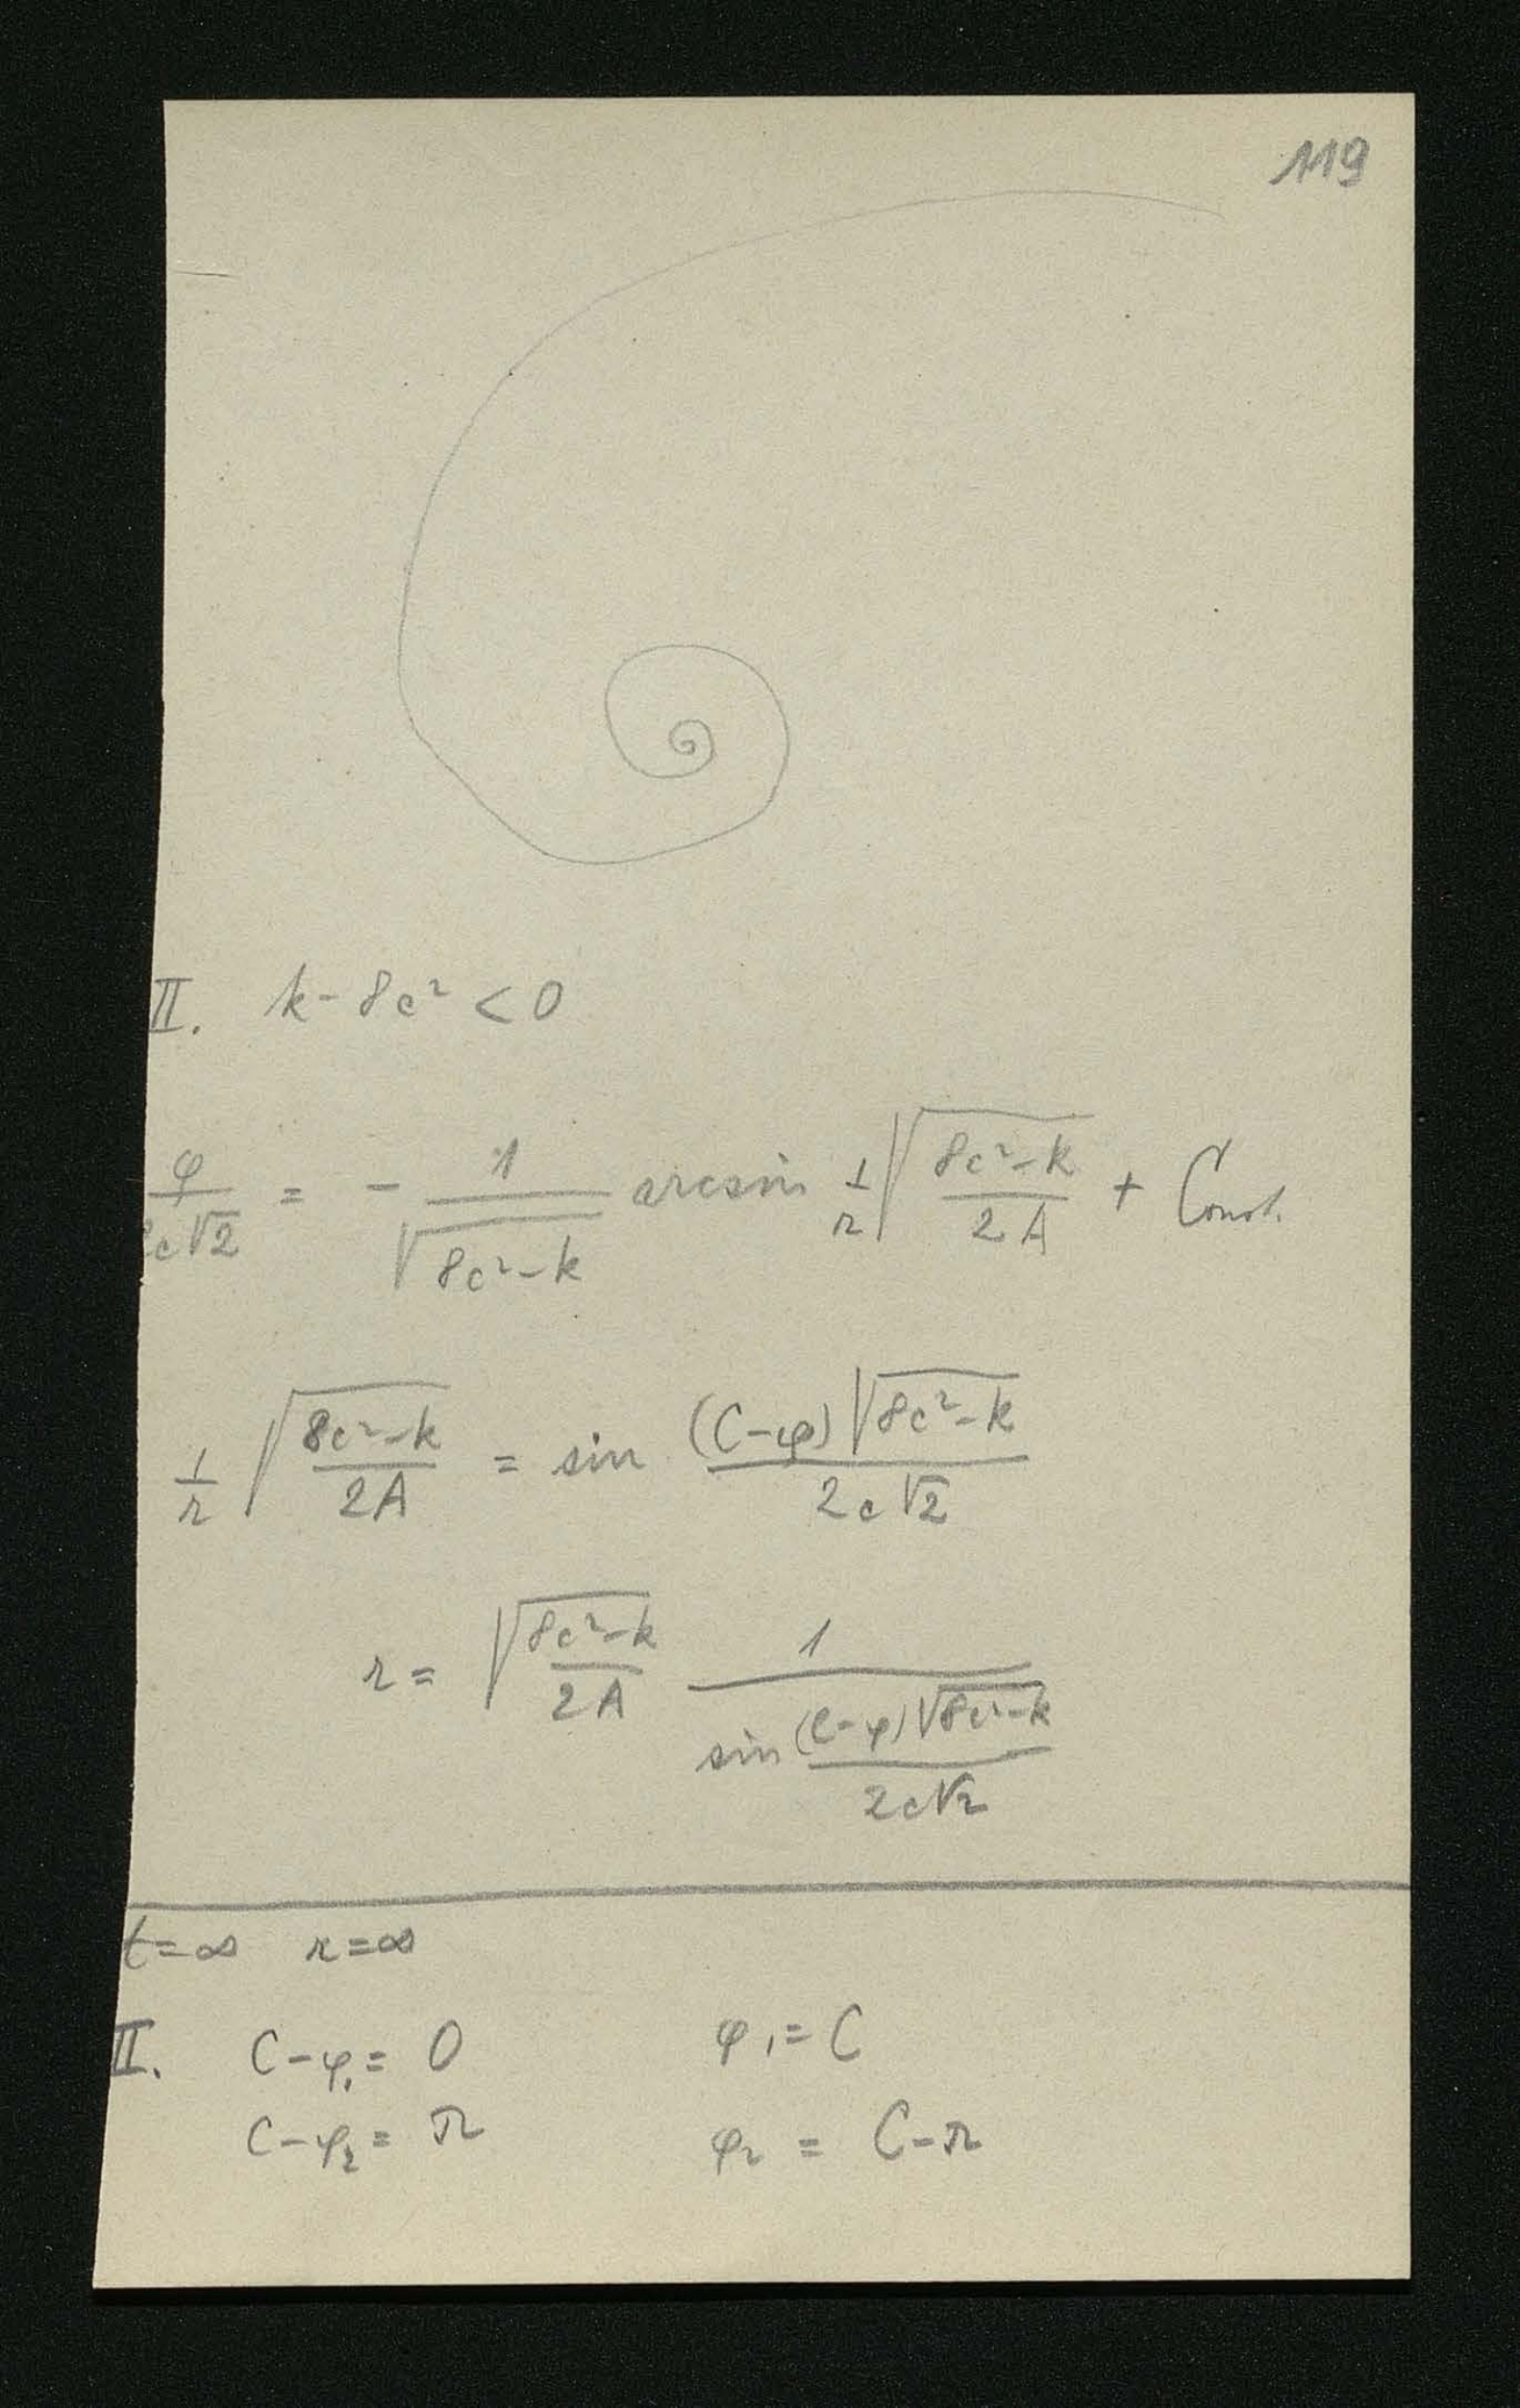 119
II. k - 8c² < 0
φ/2c√2 = - 1/√(8c²-k) arcsin 1/r √((8c²-k)/2A) + Const.
1/r √((8c²-k)/2A) = sin ((C-φ)√(8c²-k))/(2c√2)
r = √((8c²-k)/2A) 1/(sin ((C-φ)√(8c²-k))/(2c√2))
t=∞ r=∞
II. C-φ₁= 0 φ₁= C
C-φ₂= π φ₂ = C-π